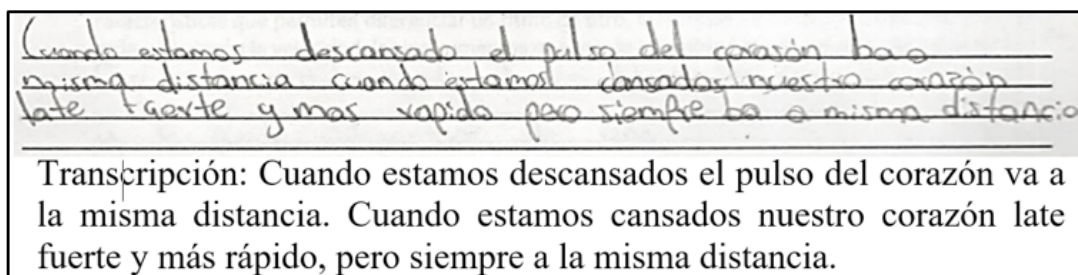 Cuando estamos descansado el pulso del corazón ba a
misma distancia cuando estamos cansados nuestro corazón
late fuerte y mas rapido pero siempre ba a misma distancia
Transcripción: Cuando estamos descansados el pulso del corazón va a
la misma distancia. Cuando estamos cansados nuestro corazón late
fuerte y más rápido, pero siempre a la misma distancia.